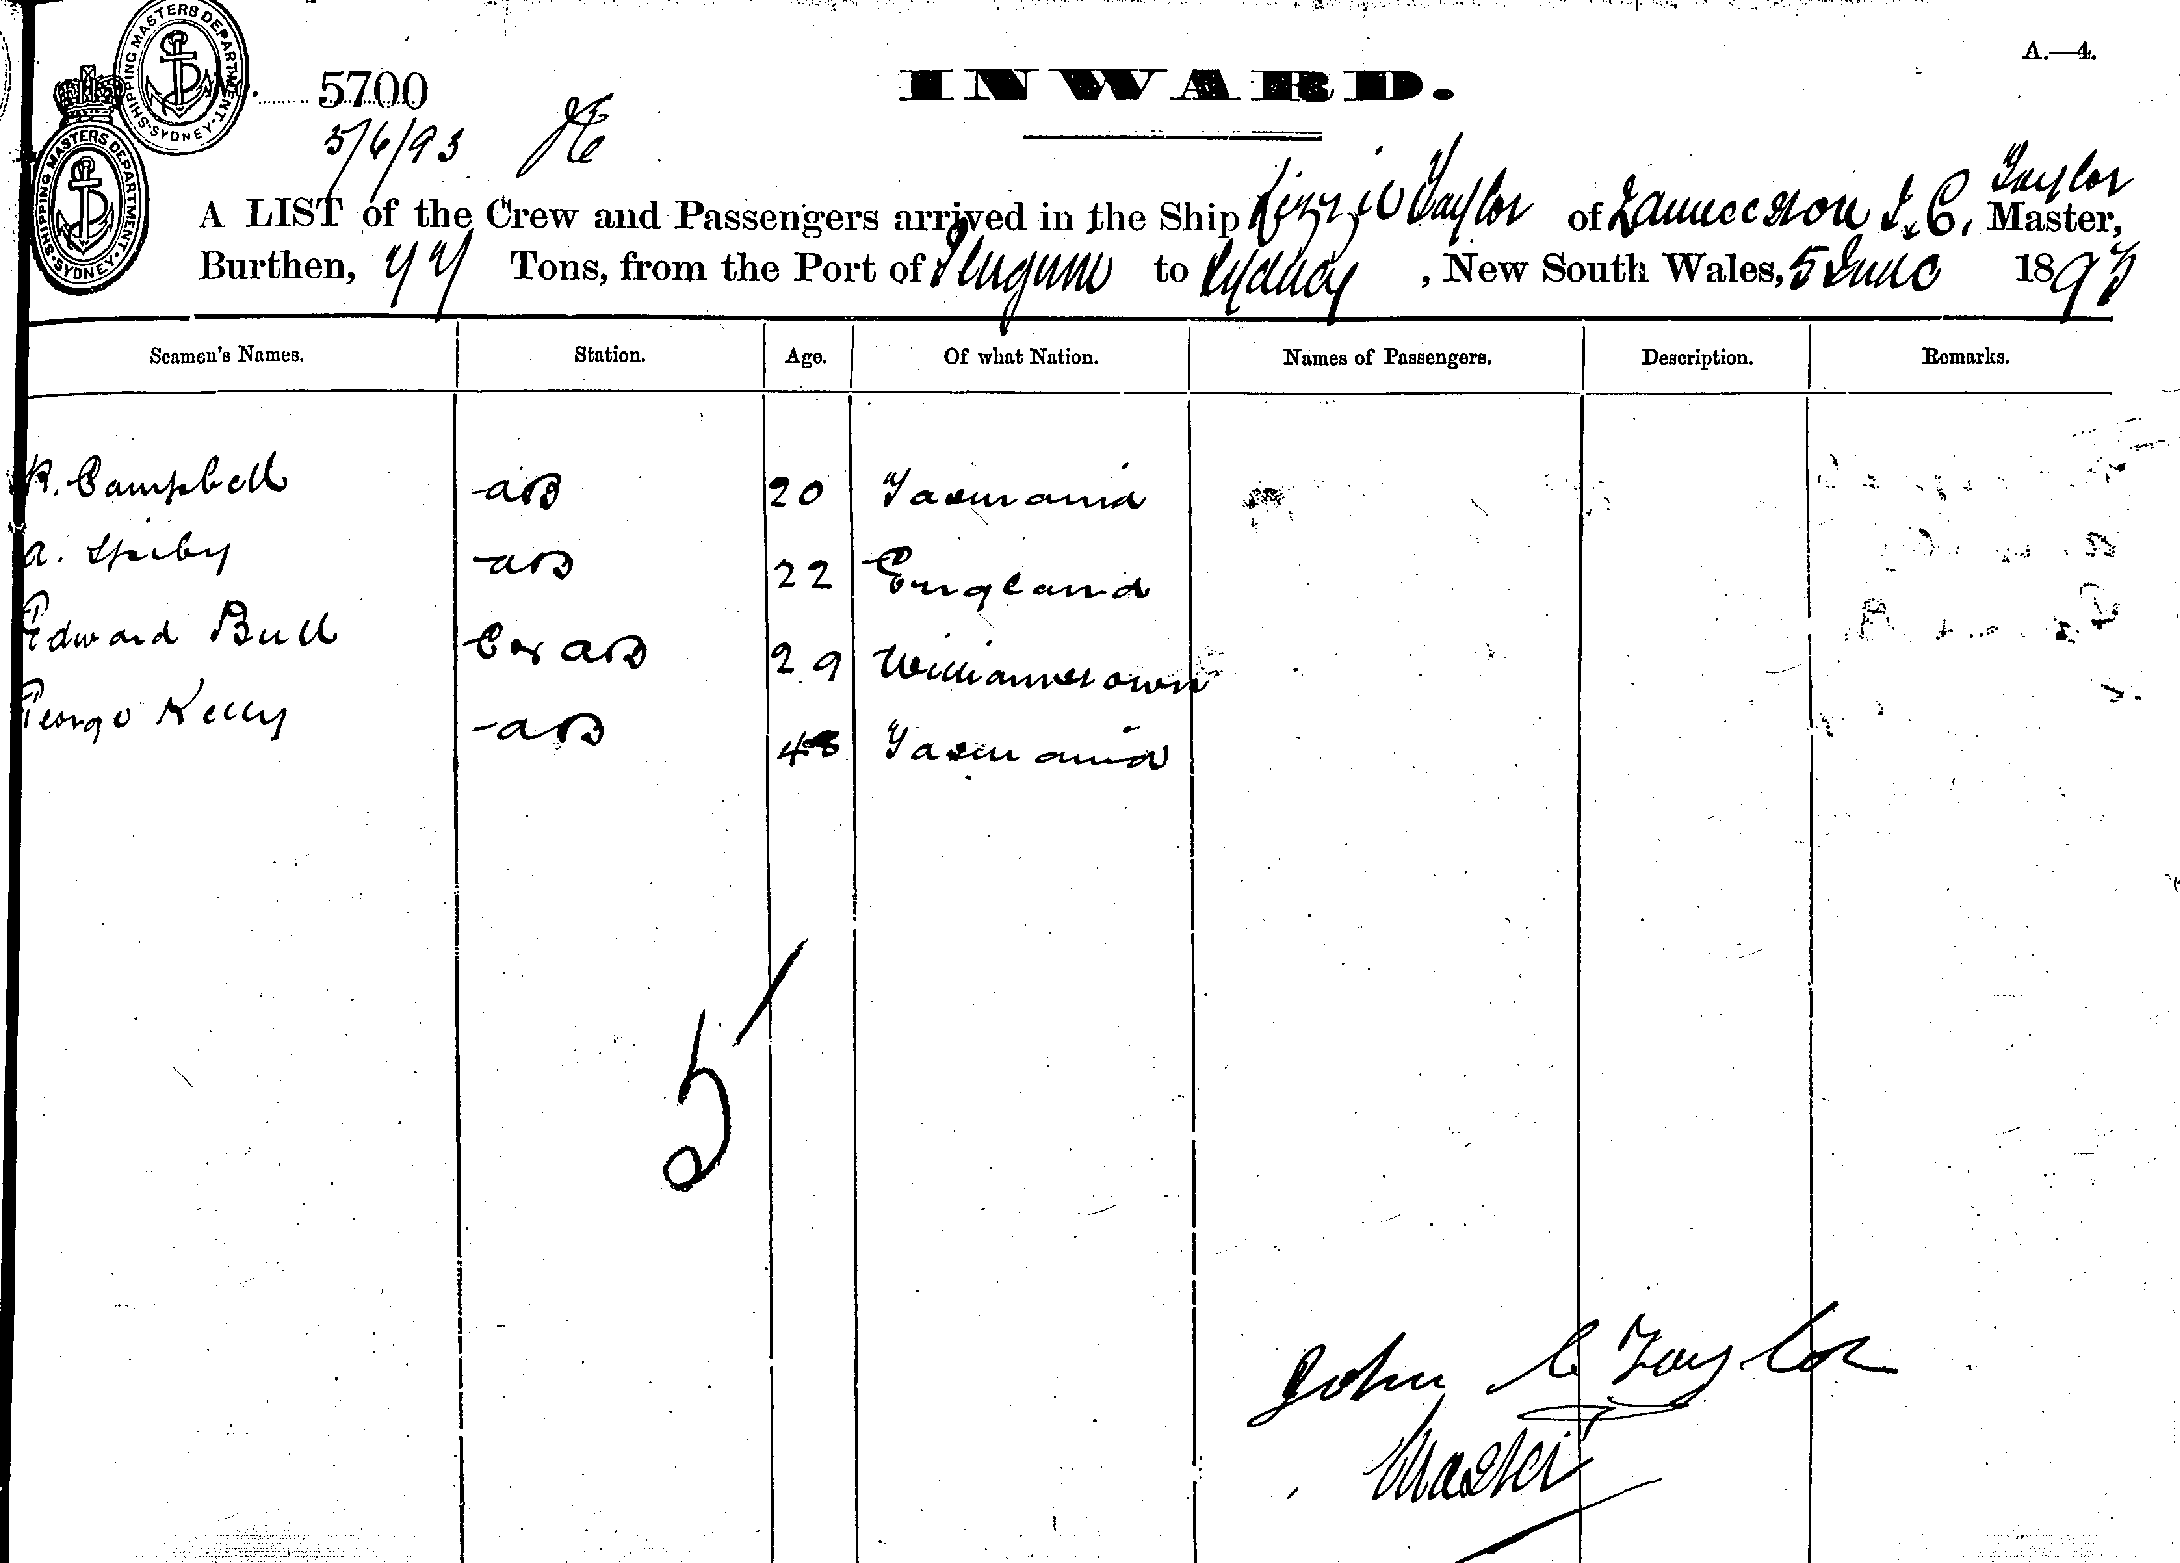 A.—4.
SHIPPING MASTERS DEPARTMENT SYDNEY
No. 5700
INWARD.
5/6/93
SHIPPING MASTERS DEPARTMENT SYDNEY
Taylor
A LIST of the Crew and Passengers arrived in the Ship Lizzie Taylor of Launceston J. C. Master,
Burthen, 77 Tons, from the Port of to Sydney, New South Wales, 5 June 1893
Seamen's Names. Station. Age. Of what Nation. Names of Passengers. Description. Remarks.
R. Campbell AB 20 Tasmania
A. Spiby AB 22 England
Edward Bull AB 29 Williamstown
George Kelly AB 48 Tasmania
5
John C Taylor
Master